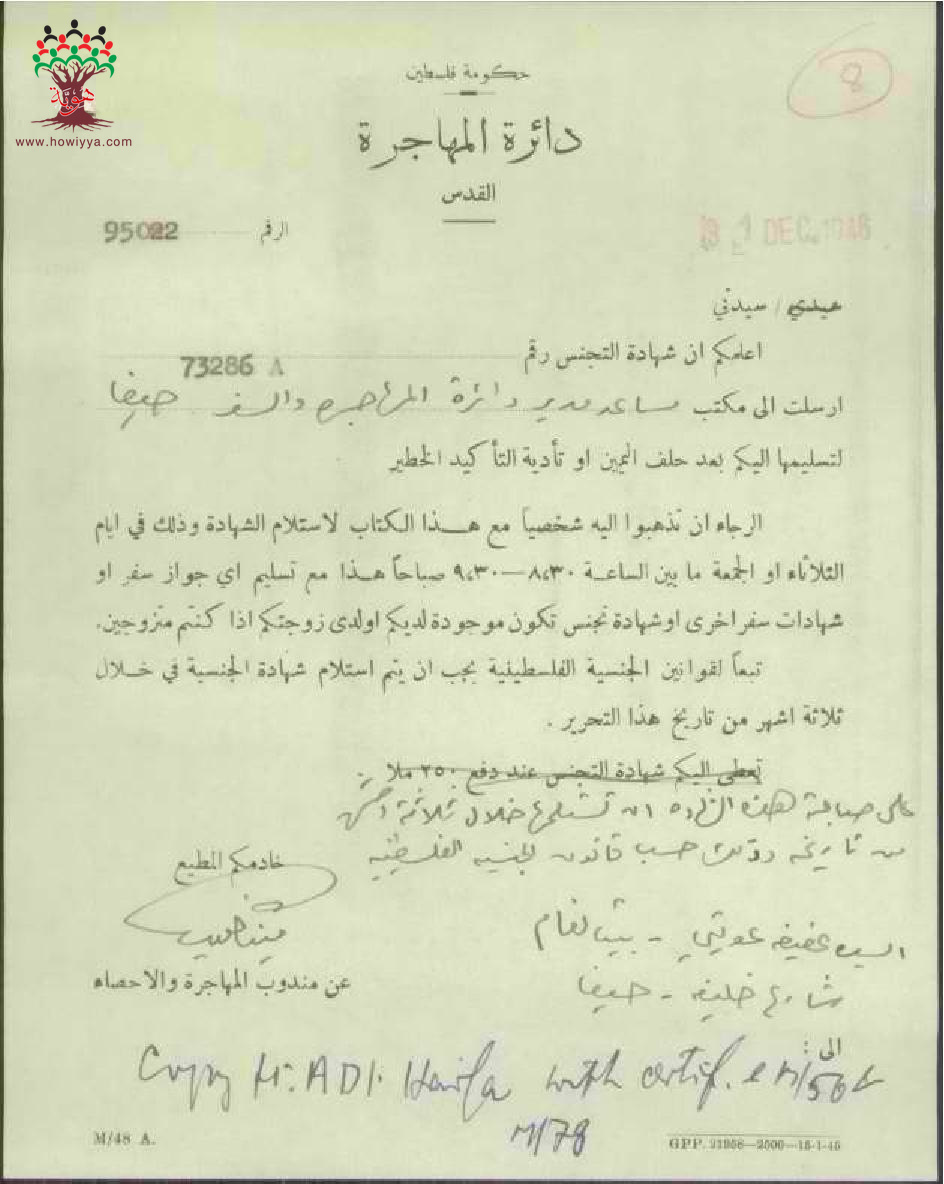 هوية
www.howiyya.com
8
حكومة فلسطين
دائرة المهاجرة
القدس
الرقم 95022
DEC. 1946
سيدي / سيدتي
اعلمكم ان شهادة التجنس رقم 73286 A
ارسلت الى مكتب مساعد مدير دائرة المهاجرة والسفر حيفا
لتسليمها اليكم بعد حلف اليمين او تأدية التأكيد الخطير
الرجاء ان تذهبوا اليه شخصياً مع هذا الكتاب لاستلام الشهادة وذلك في ايام
الثلاثاء او الجمعة ما بين الساعة ٨،٣٠—٩،٣٠ صباحاً هذا مع تسليم اي جواز سفر او
شهادات سفر اخرى او شهادة تجنس تكون موجودة لديكم او لدى زوجتكم اذا كنتم متزوجين.
تبعاً لقوانين الجنسية الفلسطينية يجب ان يتم استلام شهادة الجنسية في خلال
ثلاثة اشهر من تاريخ هذا التحرير .
تعطى اليكم شهادة التجنس عند دفع ٢٥٠ ملا .
على صاحبة هذه ان تستلمها خلال ثلاثة اشهر
من تاريخه وذلك حسب قانون الجنسية الفلسطينية
خادمكم المطيع
عن مندوب المهاجرة والاحصاء
السيدة عفيفه
شارع - حيفا
الى :
Copy to: ADI. Haifa with certif. M/50
M/78
M/48 A.
GPP. 21958—2000—15-1-46